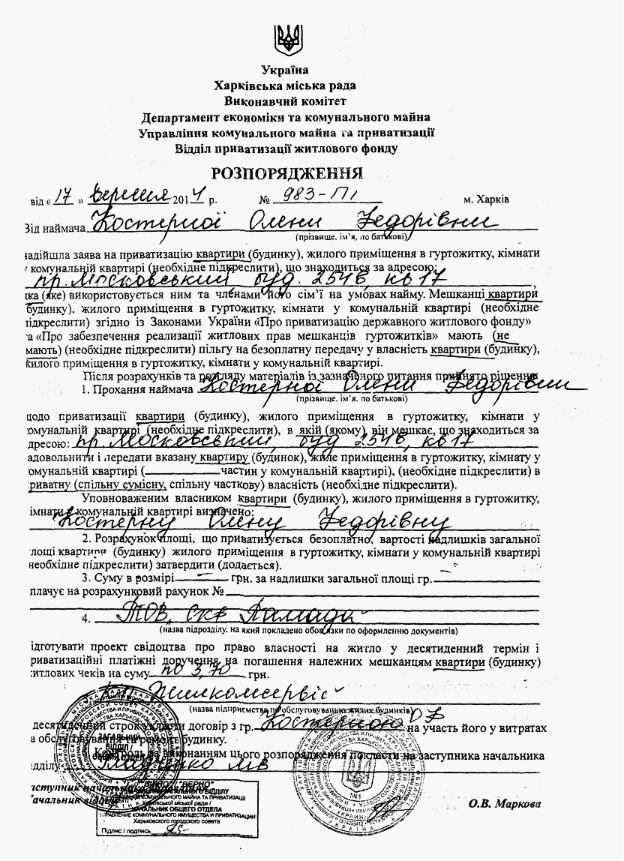 Україна
Харківська міська рада
Виконавчий комітет
Департамент економіки та комунального майна
Управління комунального майна та приватизації
Відділ приватизації житлового фонду
РОЗПОРЯДЖЕННЯ
від « 17 » вересня 2014 р. № 983-П1 м. Харків
Від наймача Костерної Олени Федорівни
(прізвище, ім'я, по батькові)
надійшла заява на приватизацію квартири (будинку), жилого приміщення в гуртожитку, кімнати
у комунальній квартирі (необхідне підкреслити), що знаходиться за адресою:
пр. Московський, буд. 254б, кв 17
яка (яке) використовується ним та членами його сім'ї на умовах найму. Мешканці квартири
(будинку), жилого приміщення в гуртожитку, кімнати у комунальній квартирі (необхідне
підкреслити) згідно із Законами України «Про приватизацію державного житлового фонду»
та «Про забезпечення реалізації житлових прав мешканців гуртожитків» мають (не
мають) (необхідне підкреслити) пільгу на безоплатну передачу у власність квартири (будинку),
жилого приміщення в гуртожитку, кімнати у комунальній квартирі.
Після розрахунків та розгляду матеріалів із зазначеного питання прийнято рішення
1. Прохання наймача Костерної Олени Федорівни
(прізвище, ім'я, по батькові)
щодо приватизації квартири (будинку), жилого приміщення в гуртожитку, кімнати у
комунальній квартирі (необхідне підкреслити), в якій (якому) він мешкає, що знаходиться за
адресою: пр. Московський, буд 254б, кв 17
задовольнити і передати вказану квартиру (будинок), жиле приміщення в гуртожитку, кімнату у
комунальній квартирі (частин у комунальній квартирі), (необхідне підкреслити) в
приватну (спільну сумісну, спільну часткову) власність (необхідне підкреслити).
Уповноваженим власником квартири (будинку), жилого приміщення в гуртожитку,
кімнати у комунальній квартирі визначено:
Костерну Олену Федорівну
2. Розрахунок площі, що приватизується безоплатно, вартості надлишків загальної
площі квартири (будинку) жилого приміщення в гуртожитку, кімнати у комунальній квартирі
(необхідне підкреслити) затвердити (додається).
3. Суму в розмірі грн. за надлишки загальної площі гр.
сплачує на розрахунковий рахунок №
4. ТОВ СКФ Паллада
(назва підрозділу, на який покладено обов'язки по оформленню документів)
підготувати проект свідоцтва про право власності на житло у десятиденний термін і
приватизаційні платіжні доручення на погашення належних мешканцям квартири (будинку)
житлових чеків на суму по 3,70 грн.
КП Жилкомсервіс
(назва підприємства по обслуговуванню жилих будинків)
в десятиденний строк укласти договір з гр. Костерною О Ф на участь його у витратах
на обслуговування та ремонт будинку.
Контроль за виконанням цього розпорядження покласти на заступника начальника
відділу
Заступник начальника
начальник відділу О.В. Маркова
ЗАГАЛЬНИЙ ВІДДІЛ
"ВЕРНО"
НАЧАЛЬНИК ОБЩЕГО ОТДЕЛА
УПРАВЛЕНИЕ КОММУНАЛЬНОГО ИМУЩЕСТВА И ПРИВАТИЗАЦИИ
Харьковского городского совета
Підпис / подпись